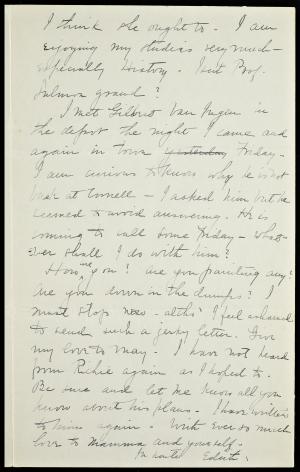 I think she ought to. I am
enjoying my studies very much –
especially History. Isn't Prof.
Salmon grand?
I met Gilbert Van Ingen in
the depot the night I came and
again in town yesterday Friday.
I am curious to know why he is not
back at Cornell – I asked him but he
seemed to avoid answering. He is
coming to call some Friday – what-
ever shall I do with him?
How are you? Are you painting any?
Are you down in the dumps? I
must stop now – altho' I feel ashamed
to send such a jerky letter. Give
my love to May. I have not heard
from Richie again as I hoped to.
Be sure and let me know all you
know about his plans. I have written
to him again. With ever so much
love to Mamma and yourself.
In haste Edith.